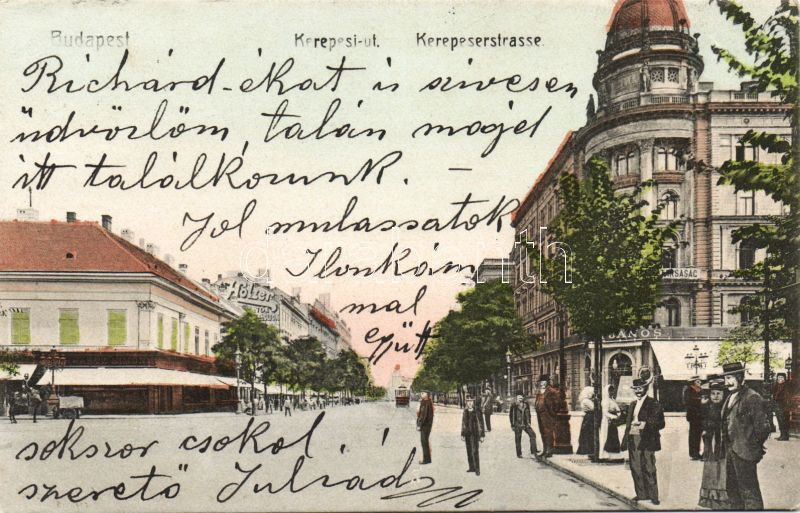 Budapest
Kerepesi-ut. Kerepeserstrasse.
Richárd-ékat is szivesen
üdvözlöm, talán majd
itt találkozunk. —
Jól mulassatok
Ilonkám
mal
együtt
sokszor csokol
szerető
Holzer
JÁNOS